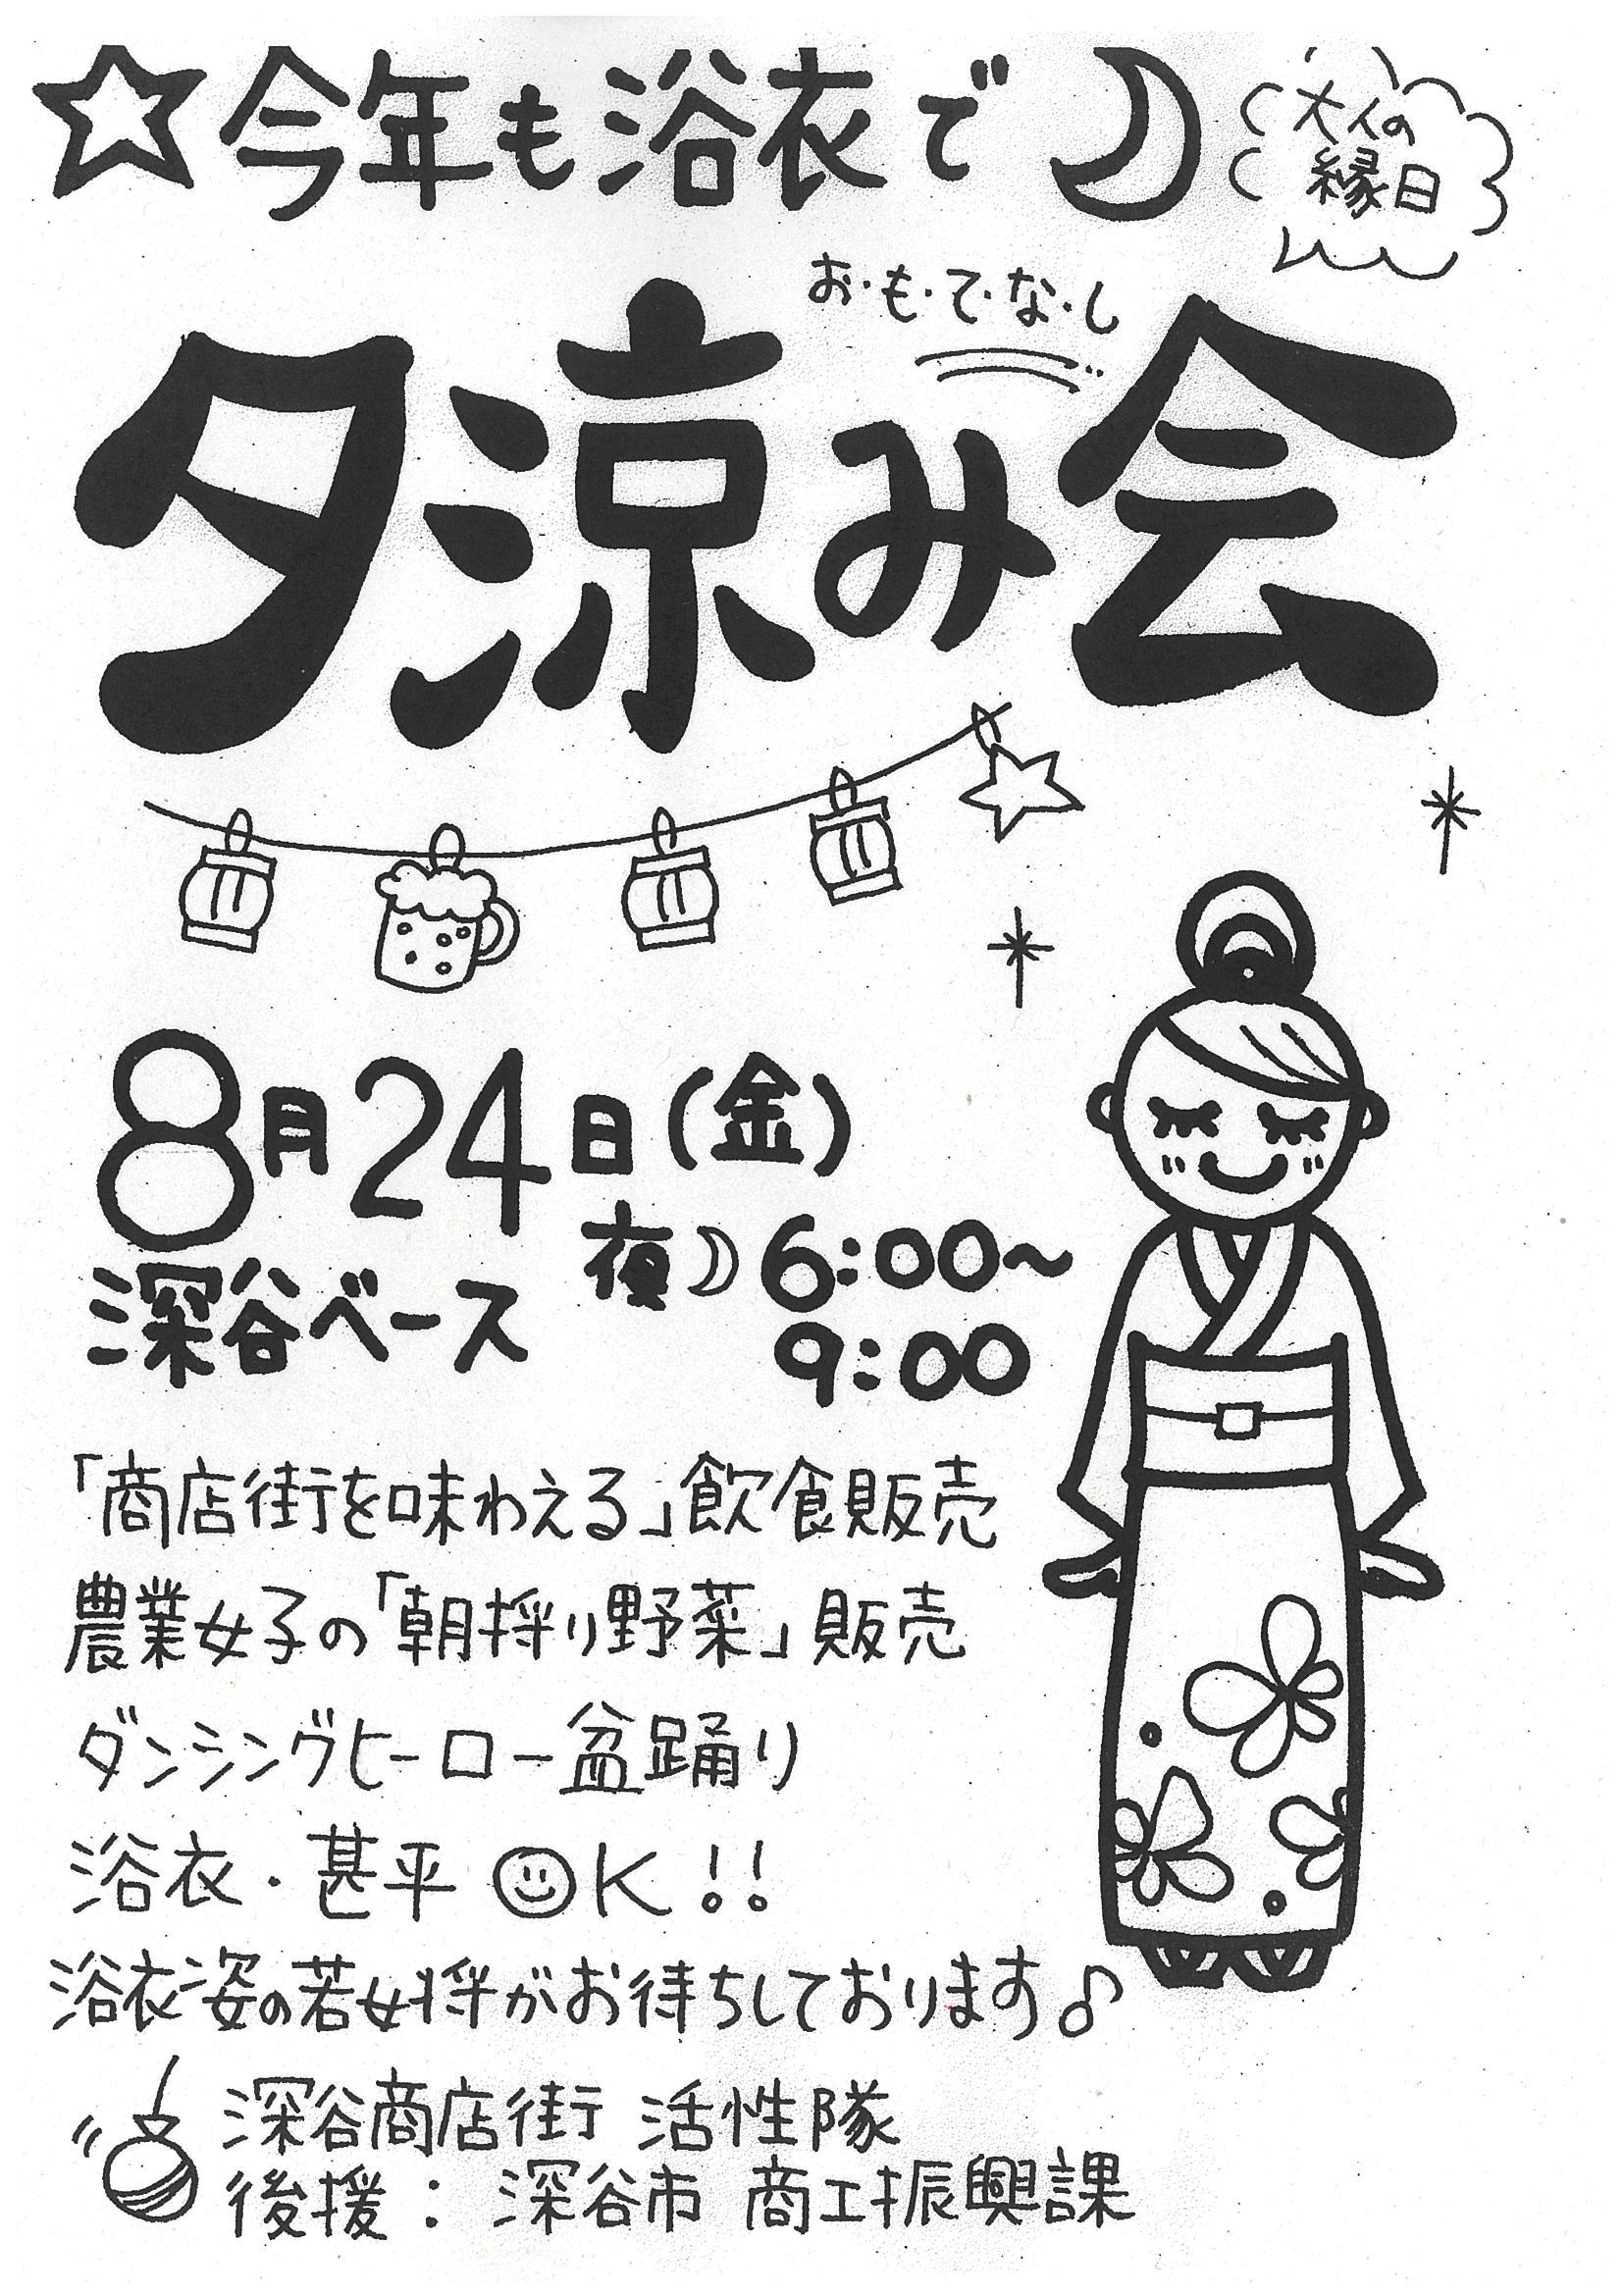 ☆今年も浴衣で
大人の
縁日
お・も・て・な・し
夕涼み会
8月24日(金)
夜 6:00〜
9:00
深谷ベース
「商店街を味わえる」飲食販売
農業女子の「朝採り野菜」販売
ダンシングヒーロー盆踊り
浴衣・甚平 OK!!
浴衣姿の若女将がお待ちしております♪
深谷商店街 活性隊
後援: 深谷市 商工振興課